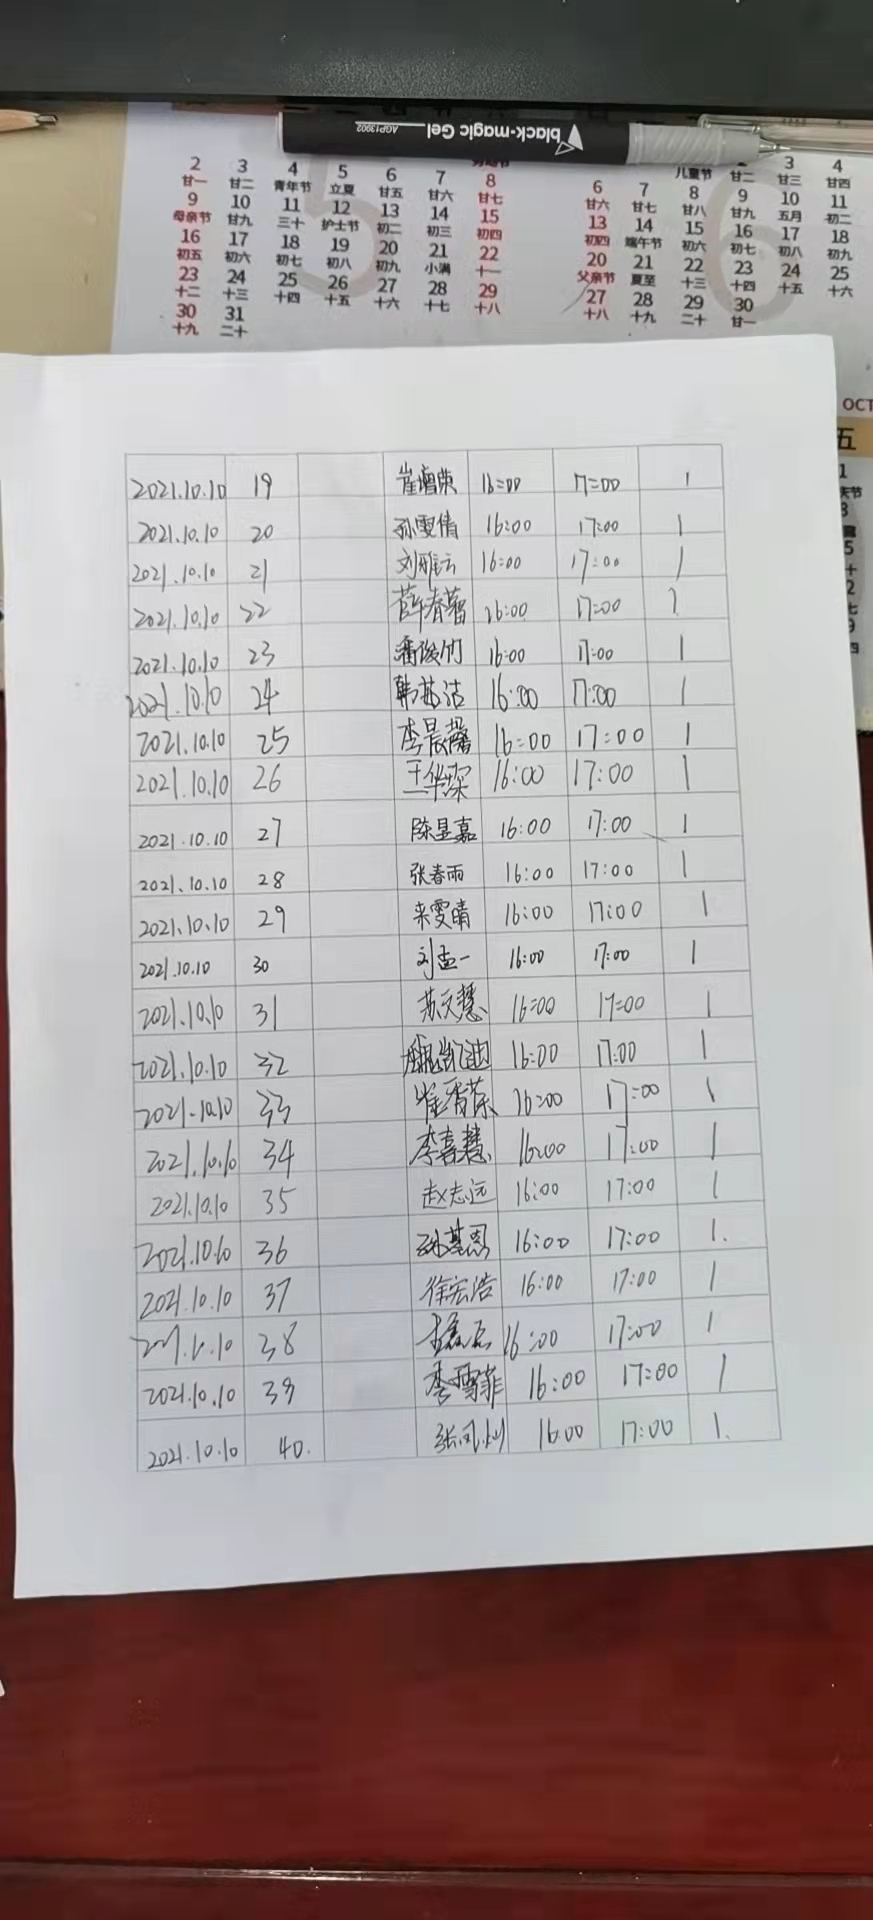 black-magic Gel AGP13902
2 3 4 5 6 7 8
廿一 廿二 青年节 立夏 廿五 廿六 廿七
9 10 11 12 13 14 15
母亲节 廿九 三十 护士节 初二 初三 初四
16 17 18 19 20 21 22
初五 初六 初七 初八 初九 小满 十一
23 24 25 26 27 28 29
十二 十三 十四 十五 十六 十七 十八
30 31
十九 二十
儿童节 廿二 廿三 廿四
6 7 8 9 10 11
廿六 廿七 廿八 廿九 五月 初二
13 14 15 16 17 18
初四 端午节 初六 初七 初八 初九
20 21 22 23 24 25
父亲节 夏至 十三 十四 十五 十六
27 28 29 30
十八 十九 二十 廿一
OCT
五
2021.10.10 19 崔增荣 16:00 17:00 1
2021.10.10 20 孙雯倩 16:00 17:00 1
2021.10.10 21 刘雅云 16:00 17:00 1
2021.10.10 22 薛春蕾 16:00 17:00 1
2021.10.10 23 潘俊竹 16:00 17:00 1
2021.10.10 24 韩喆洁 16:00 17:00 1
2021.10.10 25 李晨馨 16:00 17:00 1
2021.10.10 26 王华琛 16:00 17:00 1
2021.10.10 27 陈昱嘉 16:00 17:00 1
2021.10.10 28 张春雨 16:00 17:00 1
2021.10.10 29 来雯晴 16:00 17:00 1
2021.10.10 30 刘孟一 16:00 17:00 1
2021.10.10 31 苏文慧 16:00 17:00 1
2021.10.10 32 魏凯迪 16:00 17:00 1
2021.10.10 33 16:00 17:00 1
2021.10.10 34 李喜慧 16:00 17:00 1
2021.10.10 35 赵志远 16:00 17:00 1
2021.10.10 36 16:00 17:00 1.
2021.10.10 37 徐宏浩 16:00 17:00 1
38 16:00 17:00 1
2021.10.10 39 李雪菲 16:00 17:00 1
2021.10.10 40. 张凤灿 16:00 17:00 1.